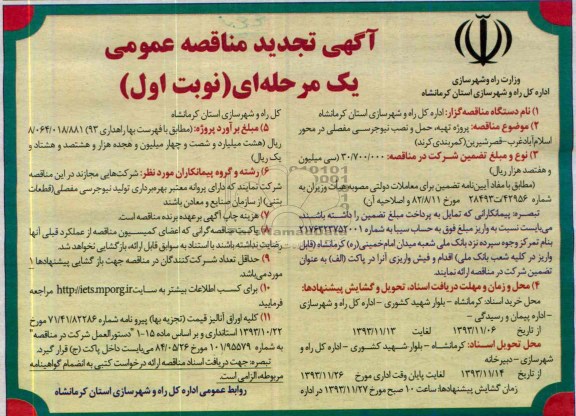 آگهی تجدید مناقصه عمومی
یک مرحله‌ای (نوبت اول)
وزارت راه و شهرسازی
اداره کل راه و شهرسازی استان کرمانشاه
۱) نام دستگاه مناقصه‌گزار: اداره کل راه و شهرسازی استان کرمانشاه
۲) موضوع مناقصه: پروژه تهیه حمل و نصب نیوجرسی مفصلی در محور
اسلام‌آبادغرب-قصرشیرین (کمربندی کرند)
۳) نوع و مبلغ تضمین شرکت در مناقصه: ۳۰/۷۰۰/۰۰۰ (سی میلیون
و هفتصد هزار ریال)
(مطابق با مفاد آیین‌نامه تضمین برای معاملات دولتی مصوبه هیأت وزیران به
شماره ۴۲۹۵۶/ت۲۸۴۹۳ مورخ ۸۲/۸/۱۱ و اصلاحیه آن)
تبصره: پیمانکارانی که تمایل به پرداخت مبلغ تضمین را داشته باشند،
می‌بایست نسبت به واریز مبلغ فوق به حساب سیبا به شماره ۲۱۷۶۴۲۳۷۵۲۰۰۱
بنام تمرکز وجوه سپرده نزد بانک ملی شعبه میدان امام خمینی(ره) کرمانشاه (قابل
واریز در کلیه شعب بانک ملی) اقدام و فیش واریزی آنرا در پاکت (الف) به عنوان
تضمین شرکت در مناقصه ارائه نمایند.
۴) محل و زمان و مهلت دریافت اسناد، تحویل و گشایش پیشنهادها:
محل خرید اسناد: کرمانشاه - بلوار شهید کشوری - اداره کل راه و شهرسازی
- اداره پیمان و رسیدگی -
از تاریخ ۱۳۹۳/۱۱/۰۶ لغایت ۱۳۹۳/۱۱/۱۳
محل تحویل اسناد: کرمانشاه - بلوار شهید کشوری - اداره کل راه و
شهرسازی - دبیرخانه
از تاریخ ۱۳۹۳/۱۱/۱۴ لغایت پایان وقت اداری مورخ ۱۳۹۳/۱۱/۲۶
زمان گشایش پیشنهادها: ساعت ۱۰ صبح مورخ ۱۳۹۳/۱۱/۲۷ در اداره
کل راه و شهرسازی استان کرمانشاه
۵) مبلغ برآورد پروژه: (مطابق با فهرست بها راهداری ۹۳) ۸/۰۶۴/۰۱۸/۸۸۱
ریال (هشت میلیارد و شصت و چهار میلیون و هجده هزار و هشتصد و هشتاد و
یک ریال)
۶) رشته و گروه پیمانکاران مورد نظر: شرکت‌هایی مجازند در این مناقصه
شرکت نمایند که دارای پروانه معتبر بهره‌برداری تولید نیوجرسی مفصلی (قطعات
بتنی) از سازمان صنایع و معادن باشند
۷) هزینه چاپ آگهی برعهده برنده مناقصه است.
۸) پاکت مناقصه‌گرانی که اعضای کمیسیون مناقصه از عملکرد قبلی آنها
رضایت نداشته باشند با استناد به سوابق قابل ارائه، بازگشایی نخواهد شد.
۹) حداقل تعداد شرکت‌کنندگان در مناقصه جهت بازگشایی پیشنهادها ۱
مورد می‌باشد
۱۰) برای کسب اطلاعات بیشتر به سایت http://iets.mporg.ir مراجعه
فرمایید
۱۱) کلیه اوراق آنالیز قیمت (تجزیه بها) پیرو نامه شماره ۷۱/۴۱/۸۲۲۸۶ مورخ
۱۳۹۳/۱۰/۲۲ استانداری و بر اساس ماده ۱۵-۱ "دستورالعمل شرکت در مناقصه"
به شماره ۱۰۱/۹۵۵۷۹ مورخ ۸۴/۰۵/۲۶ می‌بایست داخل پاکت (ج) قرار گیرد.
تبصره: جهت دریافت اسناد مناقصه ارائه درخواست کتبی به انضمام گواهینامه
مربوطه، الزامی است.
روابط عمومی اداره کل راه و شهرسازی استان کرمانشاه